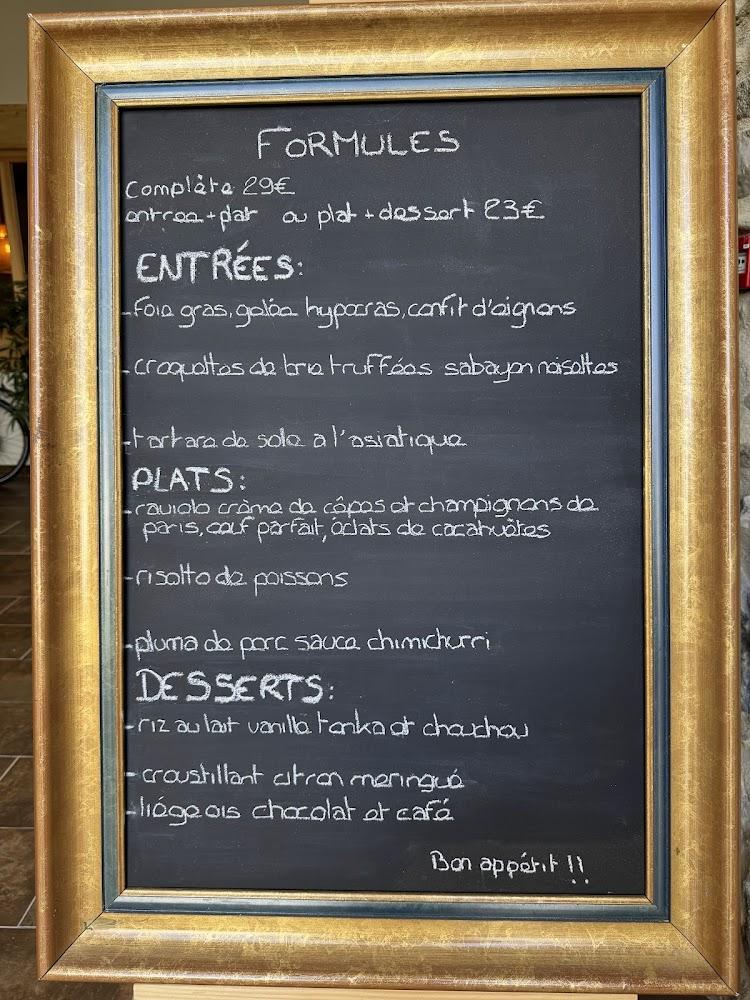 FORMULES
Complète 29€
entrée+plat ou plat+dessert 23€
ENTRÉES:
-foie gras, gelée hypocras, confit d'oignons
-croquettes de brie truffées sabayon noisettes
-tartare de sole a l'asiatique
PLATS:
-raviole crème de cêpes et champignons de
paris, oeuf parfait, éclats de cacahuètes
-risotto de poissons
-pluma de porc sauce chimichurri
DESSERTS:
-riz au lait vanille tonka et chouchou
-croustillant citron meringué
-liégeois chocolat et café
Bon appétit !!